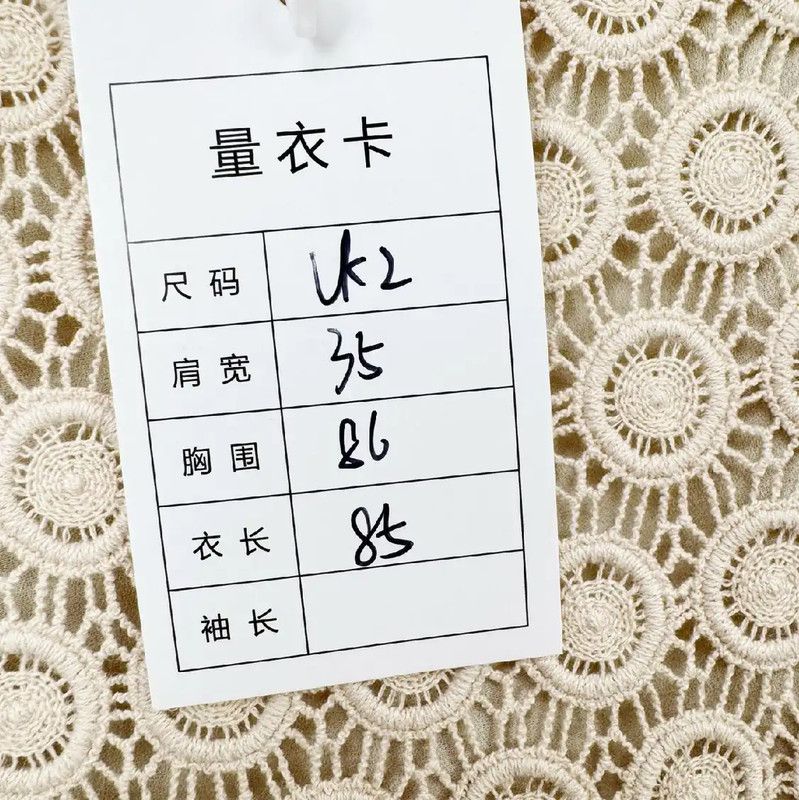 量衣卡
尺码 UK2
肩宽 35
胸围 86
衣长 85
袖长